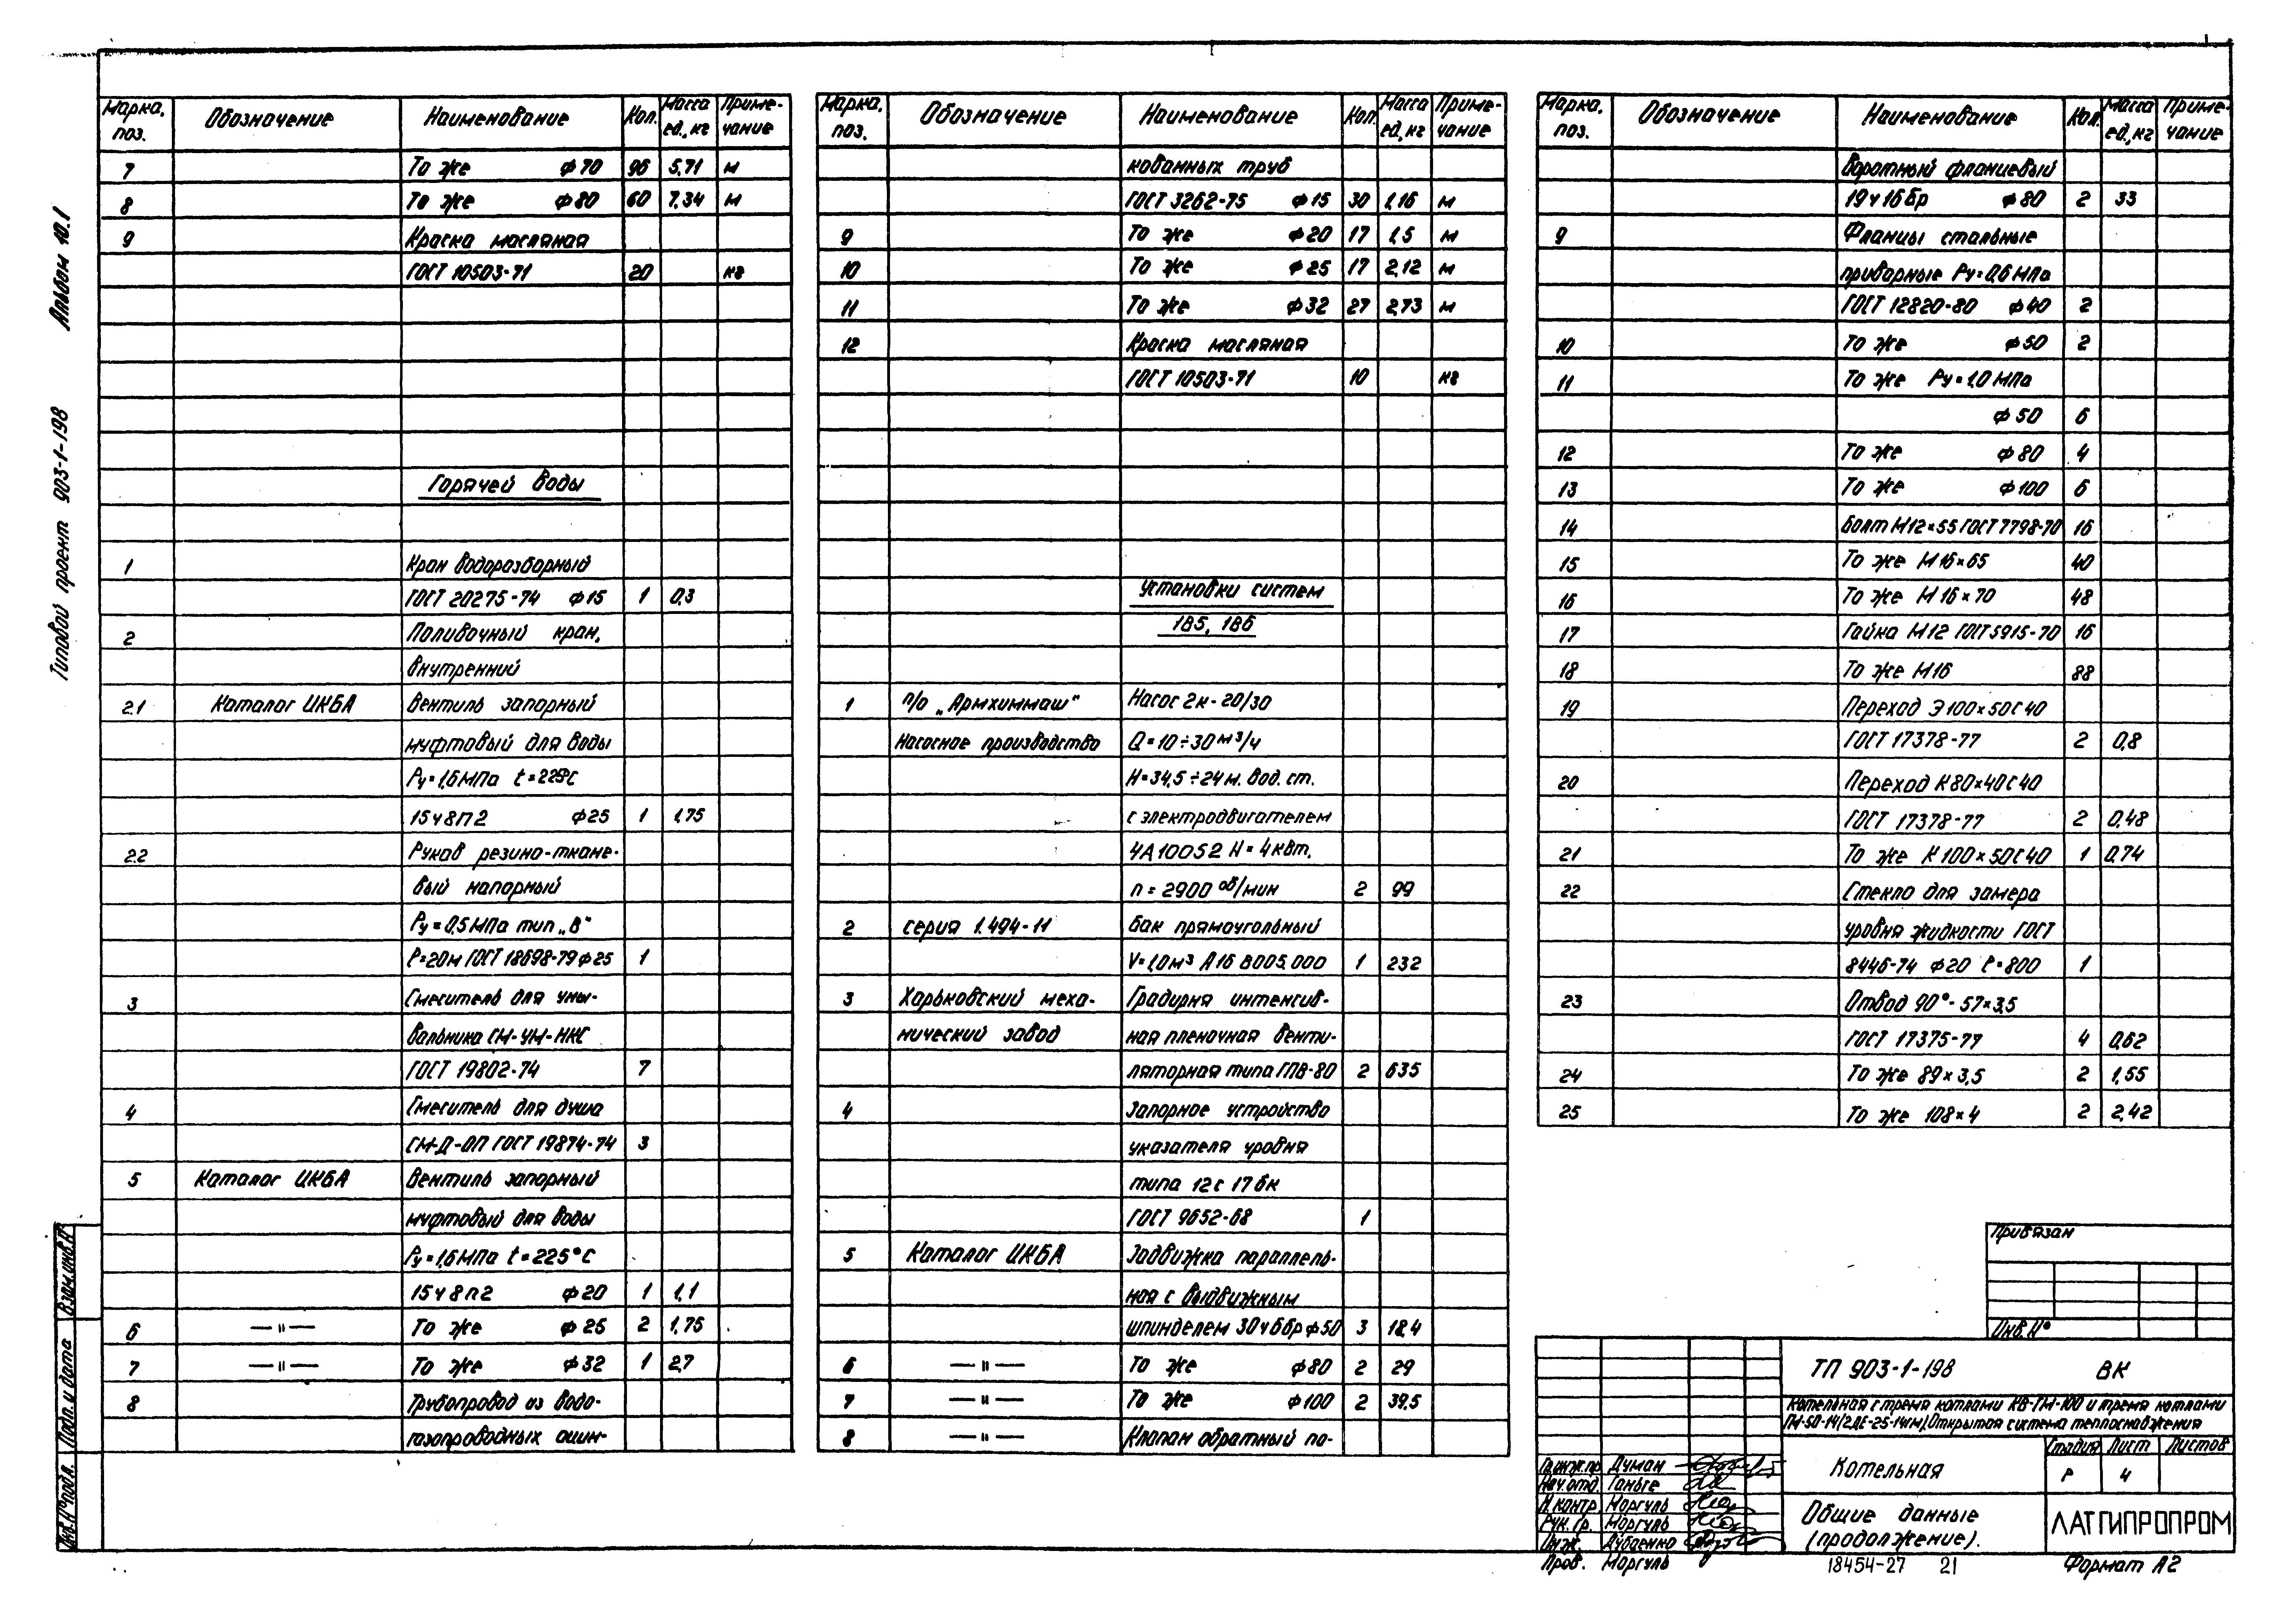 Альбом 10.1
Типовой проект 903-1-198
Марка, поз. Обозначение Наименование Кол. Масса ед., кг Приме-чание
7 То же ф70 96 5,71 м
8 То же ф80 60 7,34 м
9 Краска масляная
ГОСТ 10503-71 20 кг
Горячей воды
1 Кран водоразборный
ГОСТ 20275-74 ф15 1 0,3
2 Поливочный кран,
внутренний
2.1 Каталог ЦКБА Вентиль запорный
муфтовый для воды
Ру=1,6МПа t=225°С
15ч8п2 ф25 1 1,75
2.2 Рукав резино-ткане-
вый напорный
Ру=0,5МПа тип „В"
ℓ=20м ГОСТ 18698-79 ф25 1
3 Смеситель для умы-
вальника СМ-УМ-НКС
ГОСТ 19802-74 7
4 Смеситель для душа
СМ-Д-ОП ГОСТ 19874-74 3
5 Каталог ЦКБА Вентиль запорный
муфтовый для воды
Ру=1,6МПа t=225°С
15ч8п2 ф20 1 1,1
6 —"— То же ф25 2 1,75
7 —"— То же ф32 1 2,7
8 Трубопровод из водо-
газопроводных оцин-
Марка, поз. Обозначение Наименование Кол. Масса ед., кг Приме-чание
кованных труб
ГОСТ 3262-75 ф15 30 1,16 м
9 То же ф20 17 1,5 м
10 То же ф25 17 2,12 м
11 То же ф32 27 2,73 м
12 Краска масляная
ГОСТ 10503-71 10 кг
Установки систем
185, 186
1 п/о „Армхиммаш" Насос 2к-20/30
Насосное производство Q=10÷30м³/ч
Н=34,5÷24м. вод. ст.
с электродвигателем
4А100S2 N=4квт,
n=2900 об/мин 2 99
2 серия 1.494-11 Бак прямоугольный
V=1,0м³ А16 В005.000 1 232
3 Харьковский меха- Градирня интенсив-
нический завод ная пленочная венти-
ляторная типа ГПВ-80 2 635
4 Запорное устройство
указателя уровня
типа 12с 17бк
ГОСТ 9652-68 1
5 Каталог ЦКБА Задвижка параллель-
ная с выдвижным
шпинделем 30ч6бр ф50 3 18,4
6 —"— То же ф80 2 29
7 —"— То же ф100 2 39,5
8 —"— Клапан обратный по-
Марка, поз. Обозначение Наименование Кол. Масса ед., кг Приме-чание
воротный фланцевый
19ч16бр ф80 2 33
9 Фланцы стальные
приварные Ру=0,6МПа
ГОСТ 12820-80 ф40 2
10 То же ф50 2
11 То же Ру=1,0МПа
ф50 6
12 То же ф80 4
13 То же ф100 6
14 Болт М12×55 ГОСТ 7798-70 16
15 То же М16×65 40
16 То же М16×70 48
17 Гайка М12 ГОСТ 5915-70 16
18 То же М16 88
19 Переход Э100×50С40
ГОСТ 17378-77 2 0,8
20 Переход К80×40С40
ГОСТ 17378-77 2 0,48
21 То же К100×50С40 1 0,74
22 Стекло для замера
уровня жидкости ГОСТ
8446-74 ф20 ℓ=800 1
23 Отвод 90°-57×3,5
ГОСТ 17375-77 4 0,62
24 То же 89×3,5 2 1,55
25 То же 108×4 2 2,42
Привязан
Инв.№
ТП 903-1-198 ВК
Котельная с тремя котлами КВ-ГМ-100 и тремя котлами
ГМ-50-14(2ДЕ-25-14ГМ). Открытая система теплоснабжения
Котельная
Стадия Лист Листов
Р 4
Общие данные
(продолжение).
ЛАТГИПРОПРОМ
Гл.инж.пр. Думан
Нач.отд. Ганьге
Н.контр. Моргуль
Рук.гр. Моргуль
Инж. Дубаенко
Пров. Моргуль
18454-27 21
Формат А2
Взам.инв.№
Подп. и дата
Инв.№ подл.